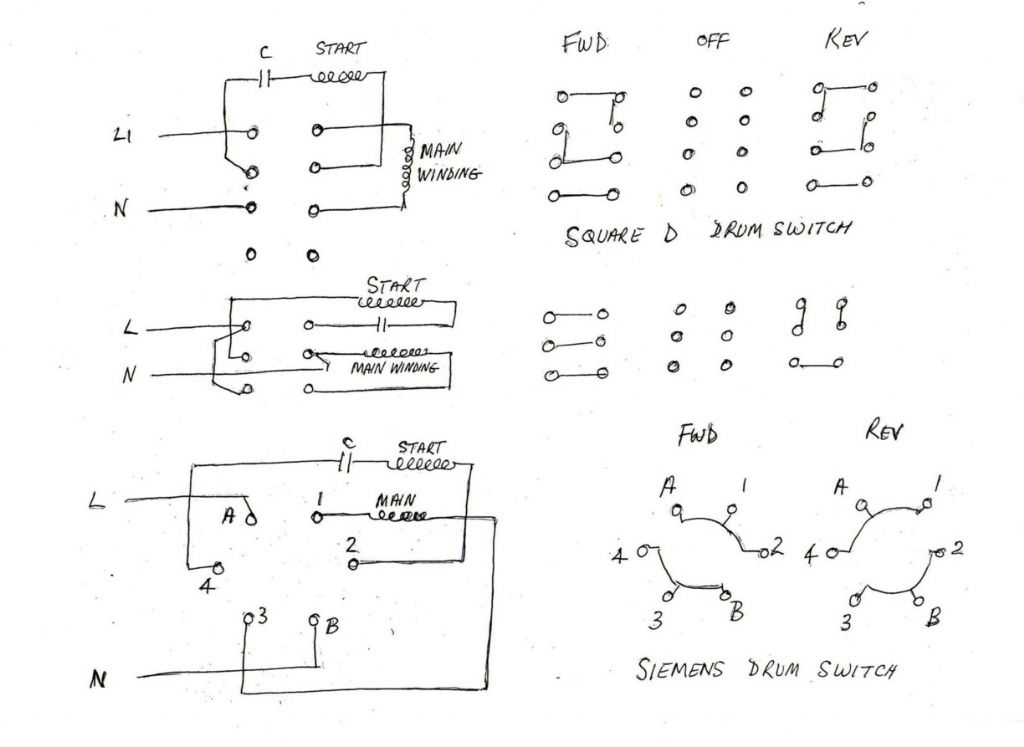 C START
L1
MAIN
WINDING
N
FWD OFF REV
SQUARE D DRUM SWITCH
START
L
N
MAIN WINDING
C START
L
A 1 MAIN
2
4
3 B
N
FWD REV
A 1 A 1
4 2 4 2
3 B 3 B
SIEMENS DRUM SWITCH